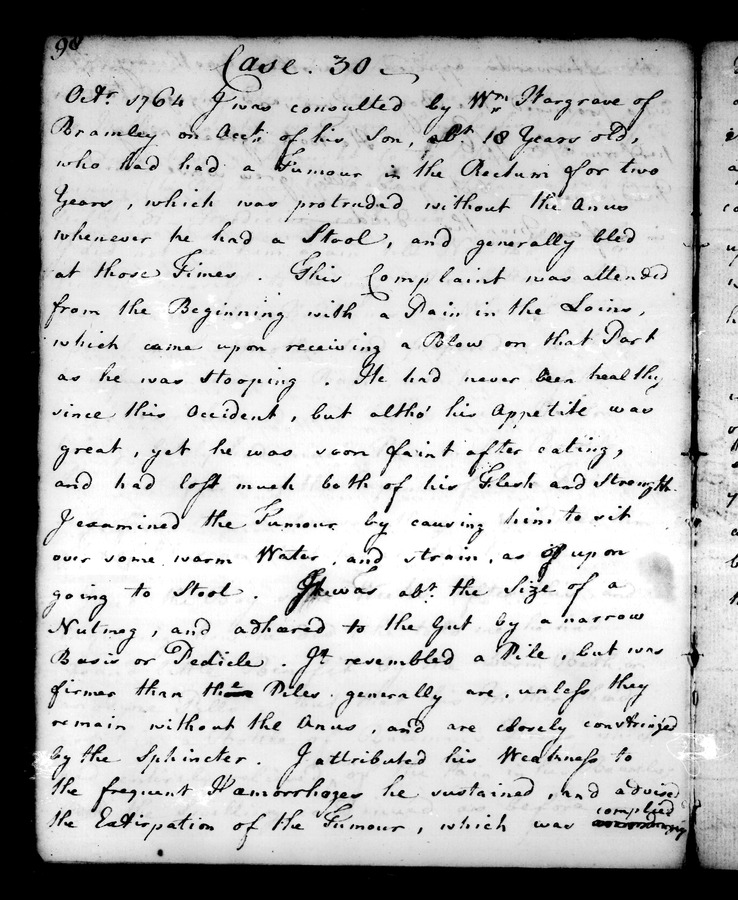 98
Case. 30
Octr. 1764 I was consulted by Wm. Hargrave of
Bramley on Acct. of his Son, abt. 18 Years old,
who had had a Tumour in the Rectum for two
Years, which was protruded without the Anus
whenever he had a Stool, and generally bled
at those Times. This Complaint was attended
from the Beginning with a Pain in the Loins,
which came upon receiving a Blow on that Part
as he was stooping. He had never been healthy
since this Accident, but altho' his Appetite was
great, yet he was soon faint after eating,
and had lost much both of his Flesh and Strength.
I examined the Tumour by causing him to sit
over some warm Water, and strain, as if upon
going to Stool. It was abt. the Size of a
Nutmeg, and adhæred to the Gut by a narrow
Basis or Pedicle. It resembled a Pile, but was
firmer than the Piles generally are, unless they
remain without the Anus, and are closely constringed
by the Sphincter. I attributed his Weakness to
the frequent Hæmorrhages he sustained, and advised
the Extirpation of the Tumour, which was complied